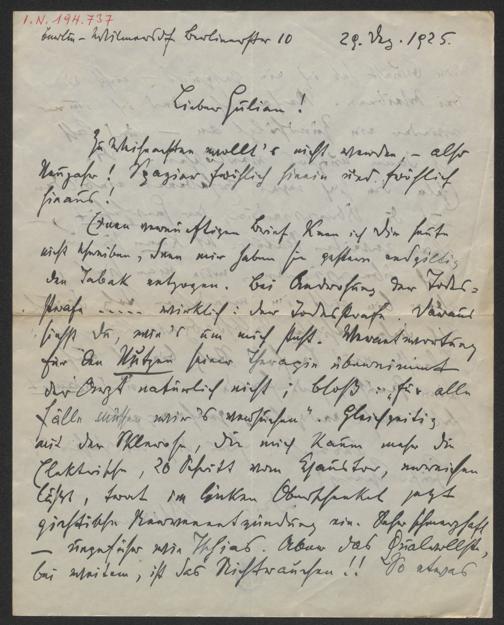 I.N. 194.737
Berlin-Wilmersdf Berlinerstr 10 29. Dez. 1925.
Lieber Julian!
Zu Weihnachten wollt's nicht werden, – also
Neujahr! Spazier fröhlich hinein und fröhlich
hinaus!
Einen vernünftigen Brief kann ich Dir heute
nicht schreiben, denn mir haben sie gestern endgiltig
den Tabak entzogen. Bei Androhung der Todes-
strafe ..... wirklich: der Todesstrafe. Daraus
siehst Du, wie's um mich steht. Verantwortung
für den Nutzen seiner Therapie übernimmt
der Arzt natürlich nicht; bloß: „für alle
Fälle müssen wir's versuchen". Gleichzeitig
mit der Sklerose, die mich kaum mehr die
Elektrische, 20 Schritt vom Haustor, erreichen
läßt, trat im linken Oberschenkel jetzt
gichtische Nervenentzündung ein. Sehr schmerzhaft
– ungefähr wie Ischias. Aber das Qualvollste,
bei weitem, ist das Nichtrauchen!! So etwas